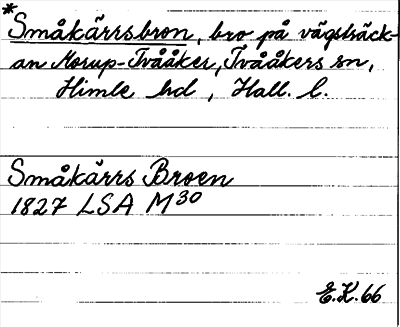 *Småkärrsbron, bro på vägsträck-
an Morup-Tvååker, Tvååkers sn,
Himle hd, Hall. l.
Småkärrs Broen
1827 LSA M30
E.K. 66